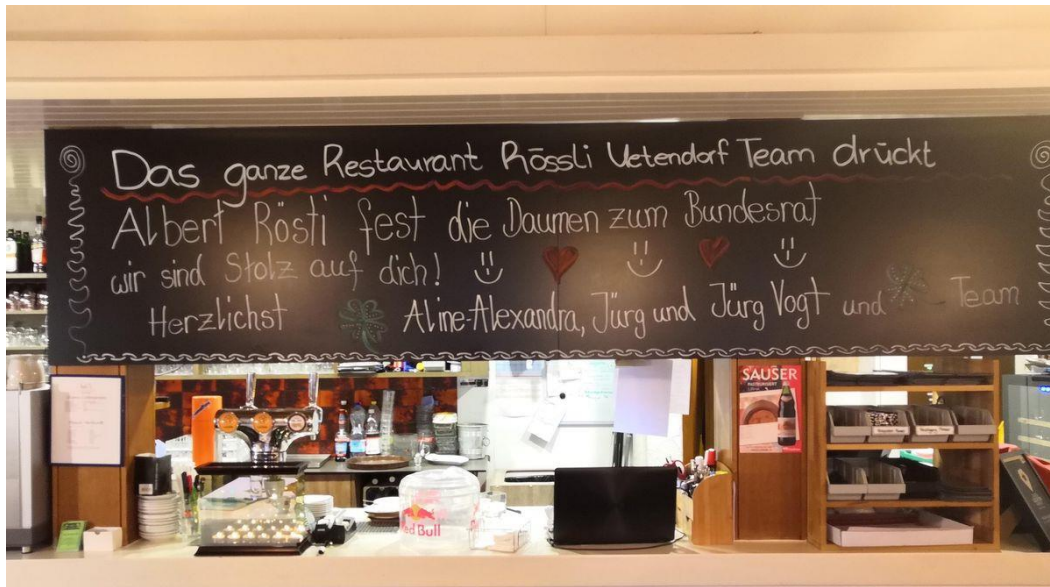 Das ganze Restaurant Rössli Uetendorf Team drückt
Albert Rösti fest die Daumen zum Bundesrat
wir sind Stolz auf dich!
Herzlichst Aline-Alexandra, Jürg und Jürg Vogt und Team
SAUSER
Red Bull